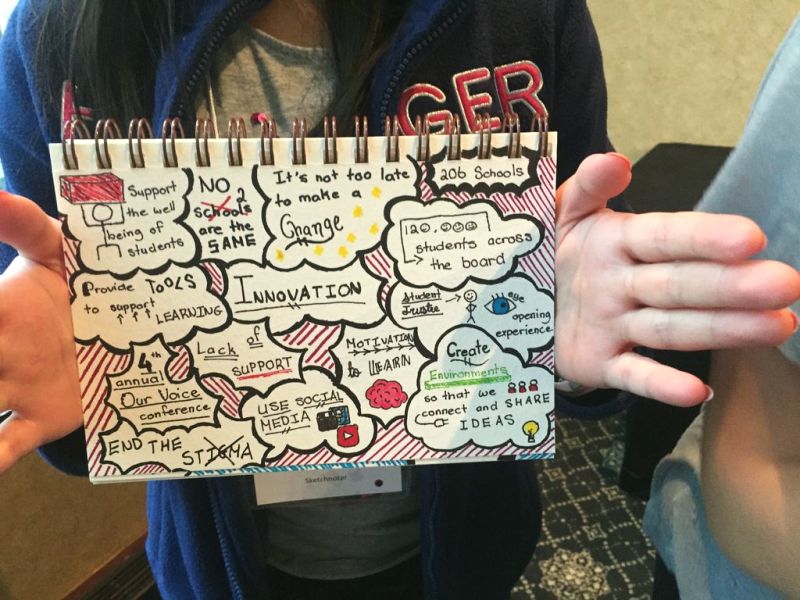 GER
Support
the well
being of
students
NO 2
schools
are the
SAME
It's not too late
to make a
Change
206 Schools
120,000
students across
the board
Provide TOOLS
to support
LEARNING
INNOVATION
Student
Trustee
eye
opening
experience
4th
annual
Our Voice
conference
Lack of
SUPPORT
MOTIVATION
to LEARN
Create
Environments
so that we
connect and SHARE
IDEAS
USE SOCIAL
MEDIA
END THE STIGMA
Sketchnoter